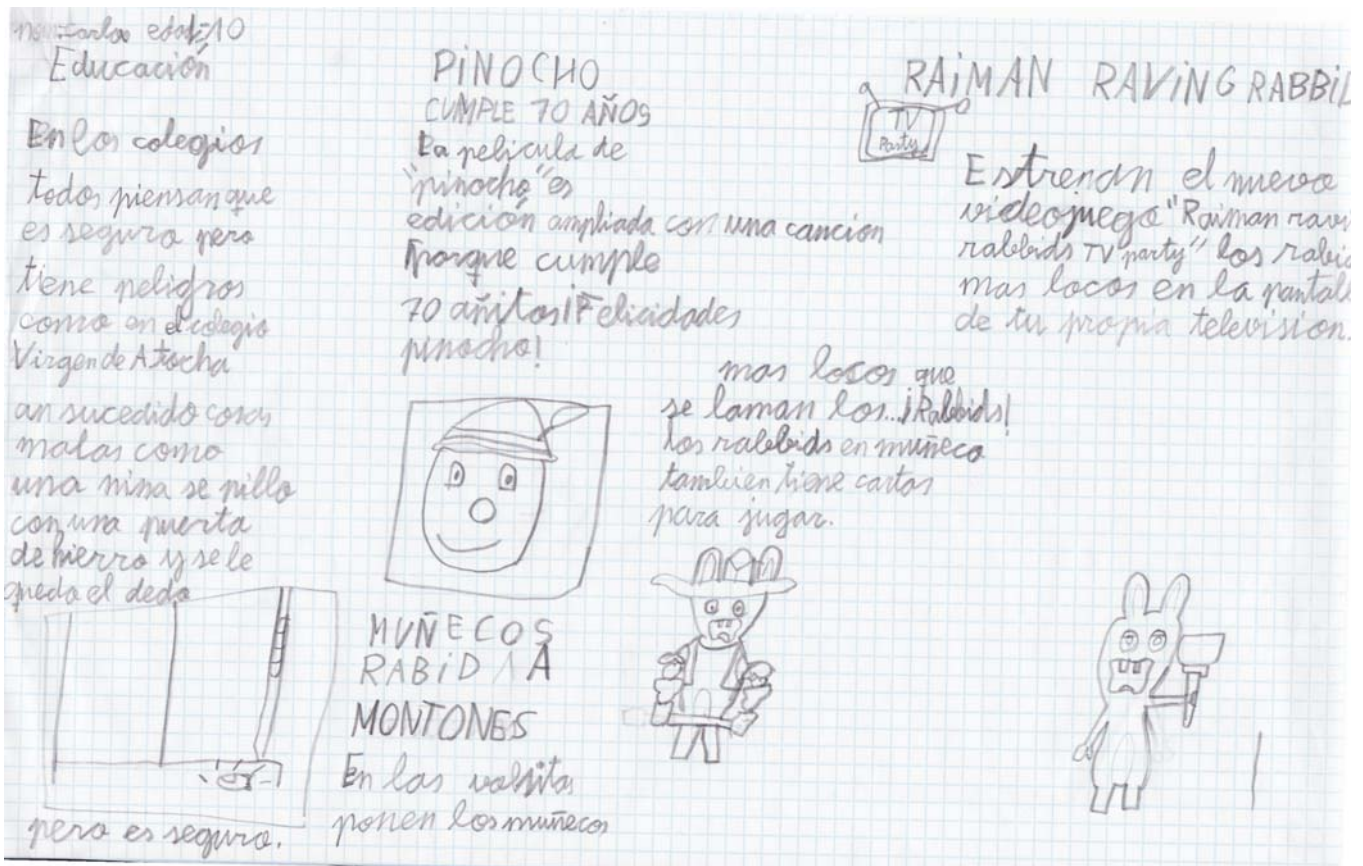 Carlos edad=10
Educación
En los colegios
todos piensan que
es seguro pero
tiene peligros
como en el colegio
Virgen de Atocha
an sucedido cosas
malas como
una nina se pillo
con una puerta
de hierro y se le
quedo el dedo
pero es seguro.
PiNOCHO
CUMPLE 70 AÑOS
La pelicula de
"pinocho" es
edición ampliada con una canción
Porque cumple
70 añitos ¡Felicidades
pinocho!
MUÑECOS
RABiD A
MONTONES
En las
ponen los muñecos
mas locos que
se laman los...¡Rabbids!
los rabbids en muñeco
tambien tiene cartas
para jugar.
RAiMAN RAViNG RABBiD
TV
Party
Estrenan el nuevo
videojuego "Raiman ravi
rabbids TV party" los rabid
mas locos en la pantall
de tu propia television.